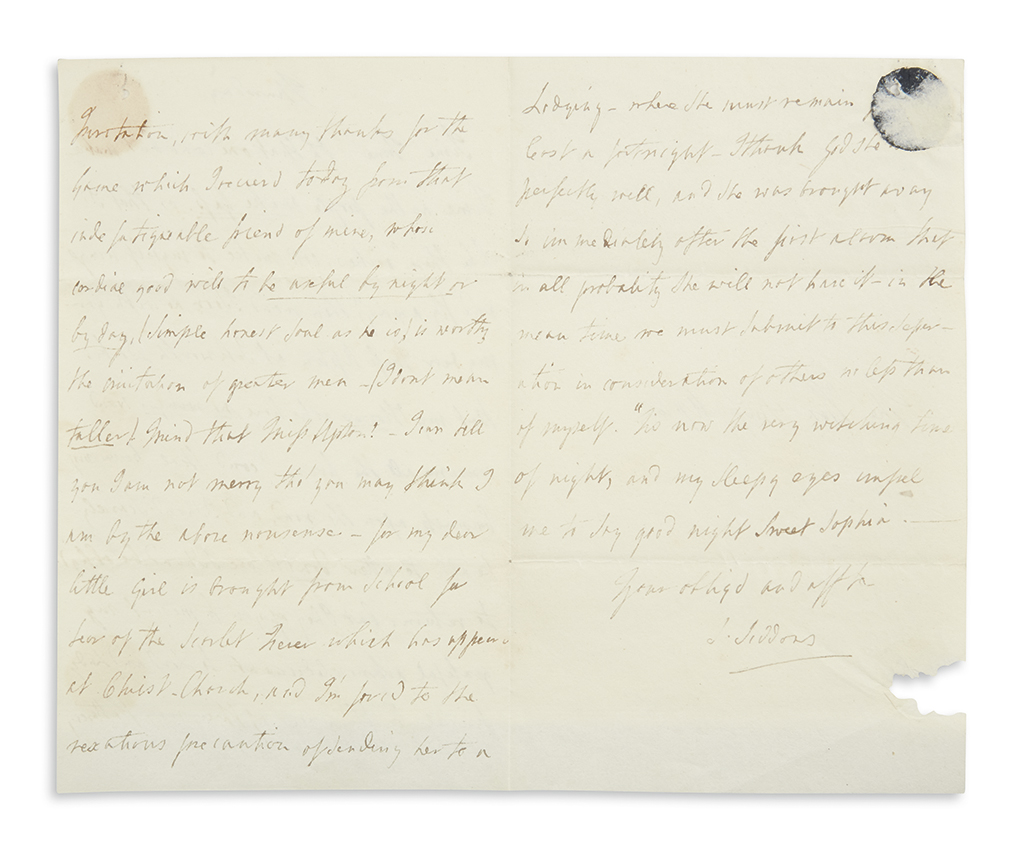 Invitation, with many thanks for the
game which I receivd today from that
indefatigueable friend of mine, whose
cordial good will to be useful by night or
by day, (simple honest Soul as he is) is worthy
the imitation of greater men - (I dont mean
taller) I mind that Miss Upton! - I can tell
you I am not merry tho' you may think I
am by the above nonsense - for my dear
little Girl is brought from School for
fear of the Scarlet Fever which has appear
at Christ-Church, and I'm forced to the
vexatious precaution of sending her to a
Lodging - where she must remain
least a fortnight - I thank God she
perfectly well, and she was brought away
so immediately after the first alarm that
in all probability she will not have it - in the
mean time we must submit to this separ-
ation in consideration of others no less than
of myself. "Tis now the very witching time
of night, and my sleepy eyes impel
me to say good night Sweet Sophia. —
Your obligd and aff
S. Siddons